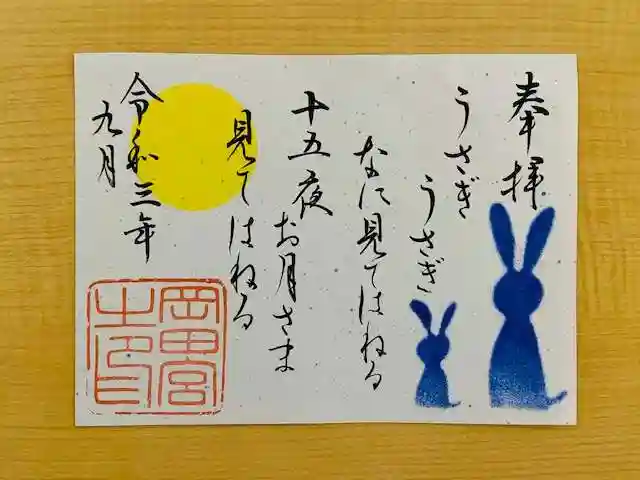 奉拝
うさぎ
うさぎ
なに見てはねる
十五夜
お月さま
見てはねる
令和三年
九月
岡田宮
之印